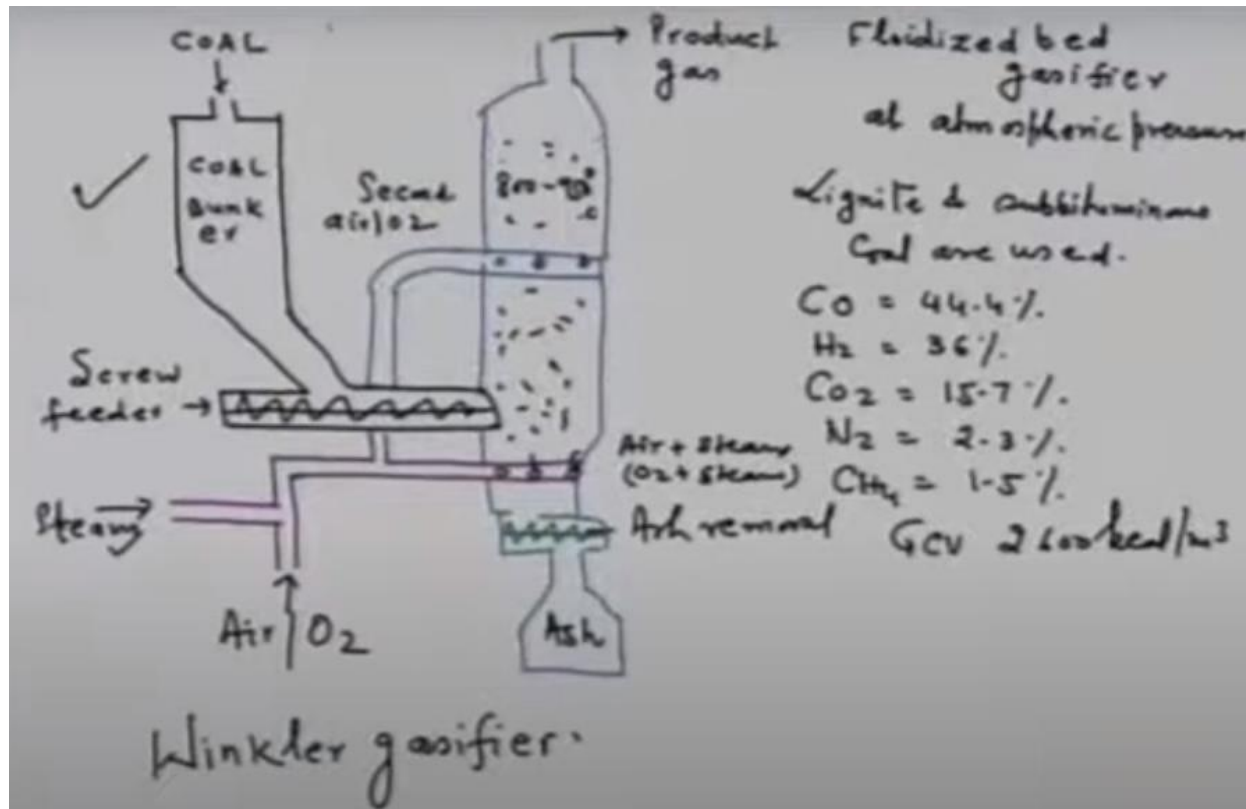 COAL
COAL
Bunk
er
Second
air/O2
800-900°
c
Product
gas
Screw
feeder
Steam
Air/O2
Air + Steam
(O2 + Steam)
Ash removal
Ash
Winkler gasifier.
Fluidized bed
gasifier
at atmospheric pressure
Lignite & subbituminous
Coal are used.
CO = 44.4%.
H2 = 36%.
CO2 = 15.7%.
N2 = 2.3%.
CH4 = 1.5%.
GCV 2600 kcal/m3